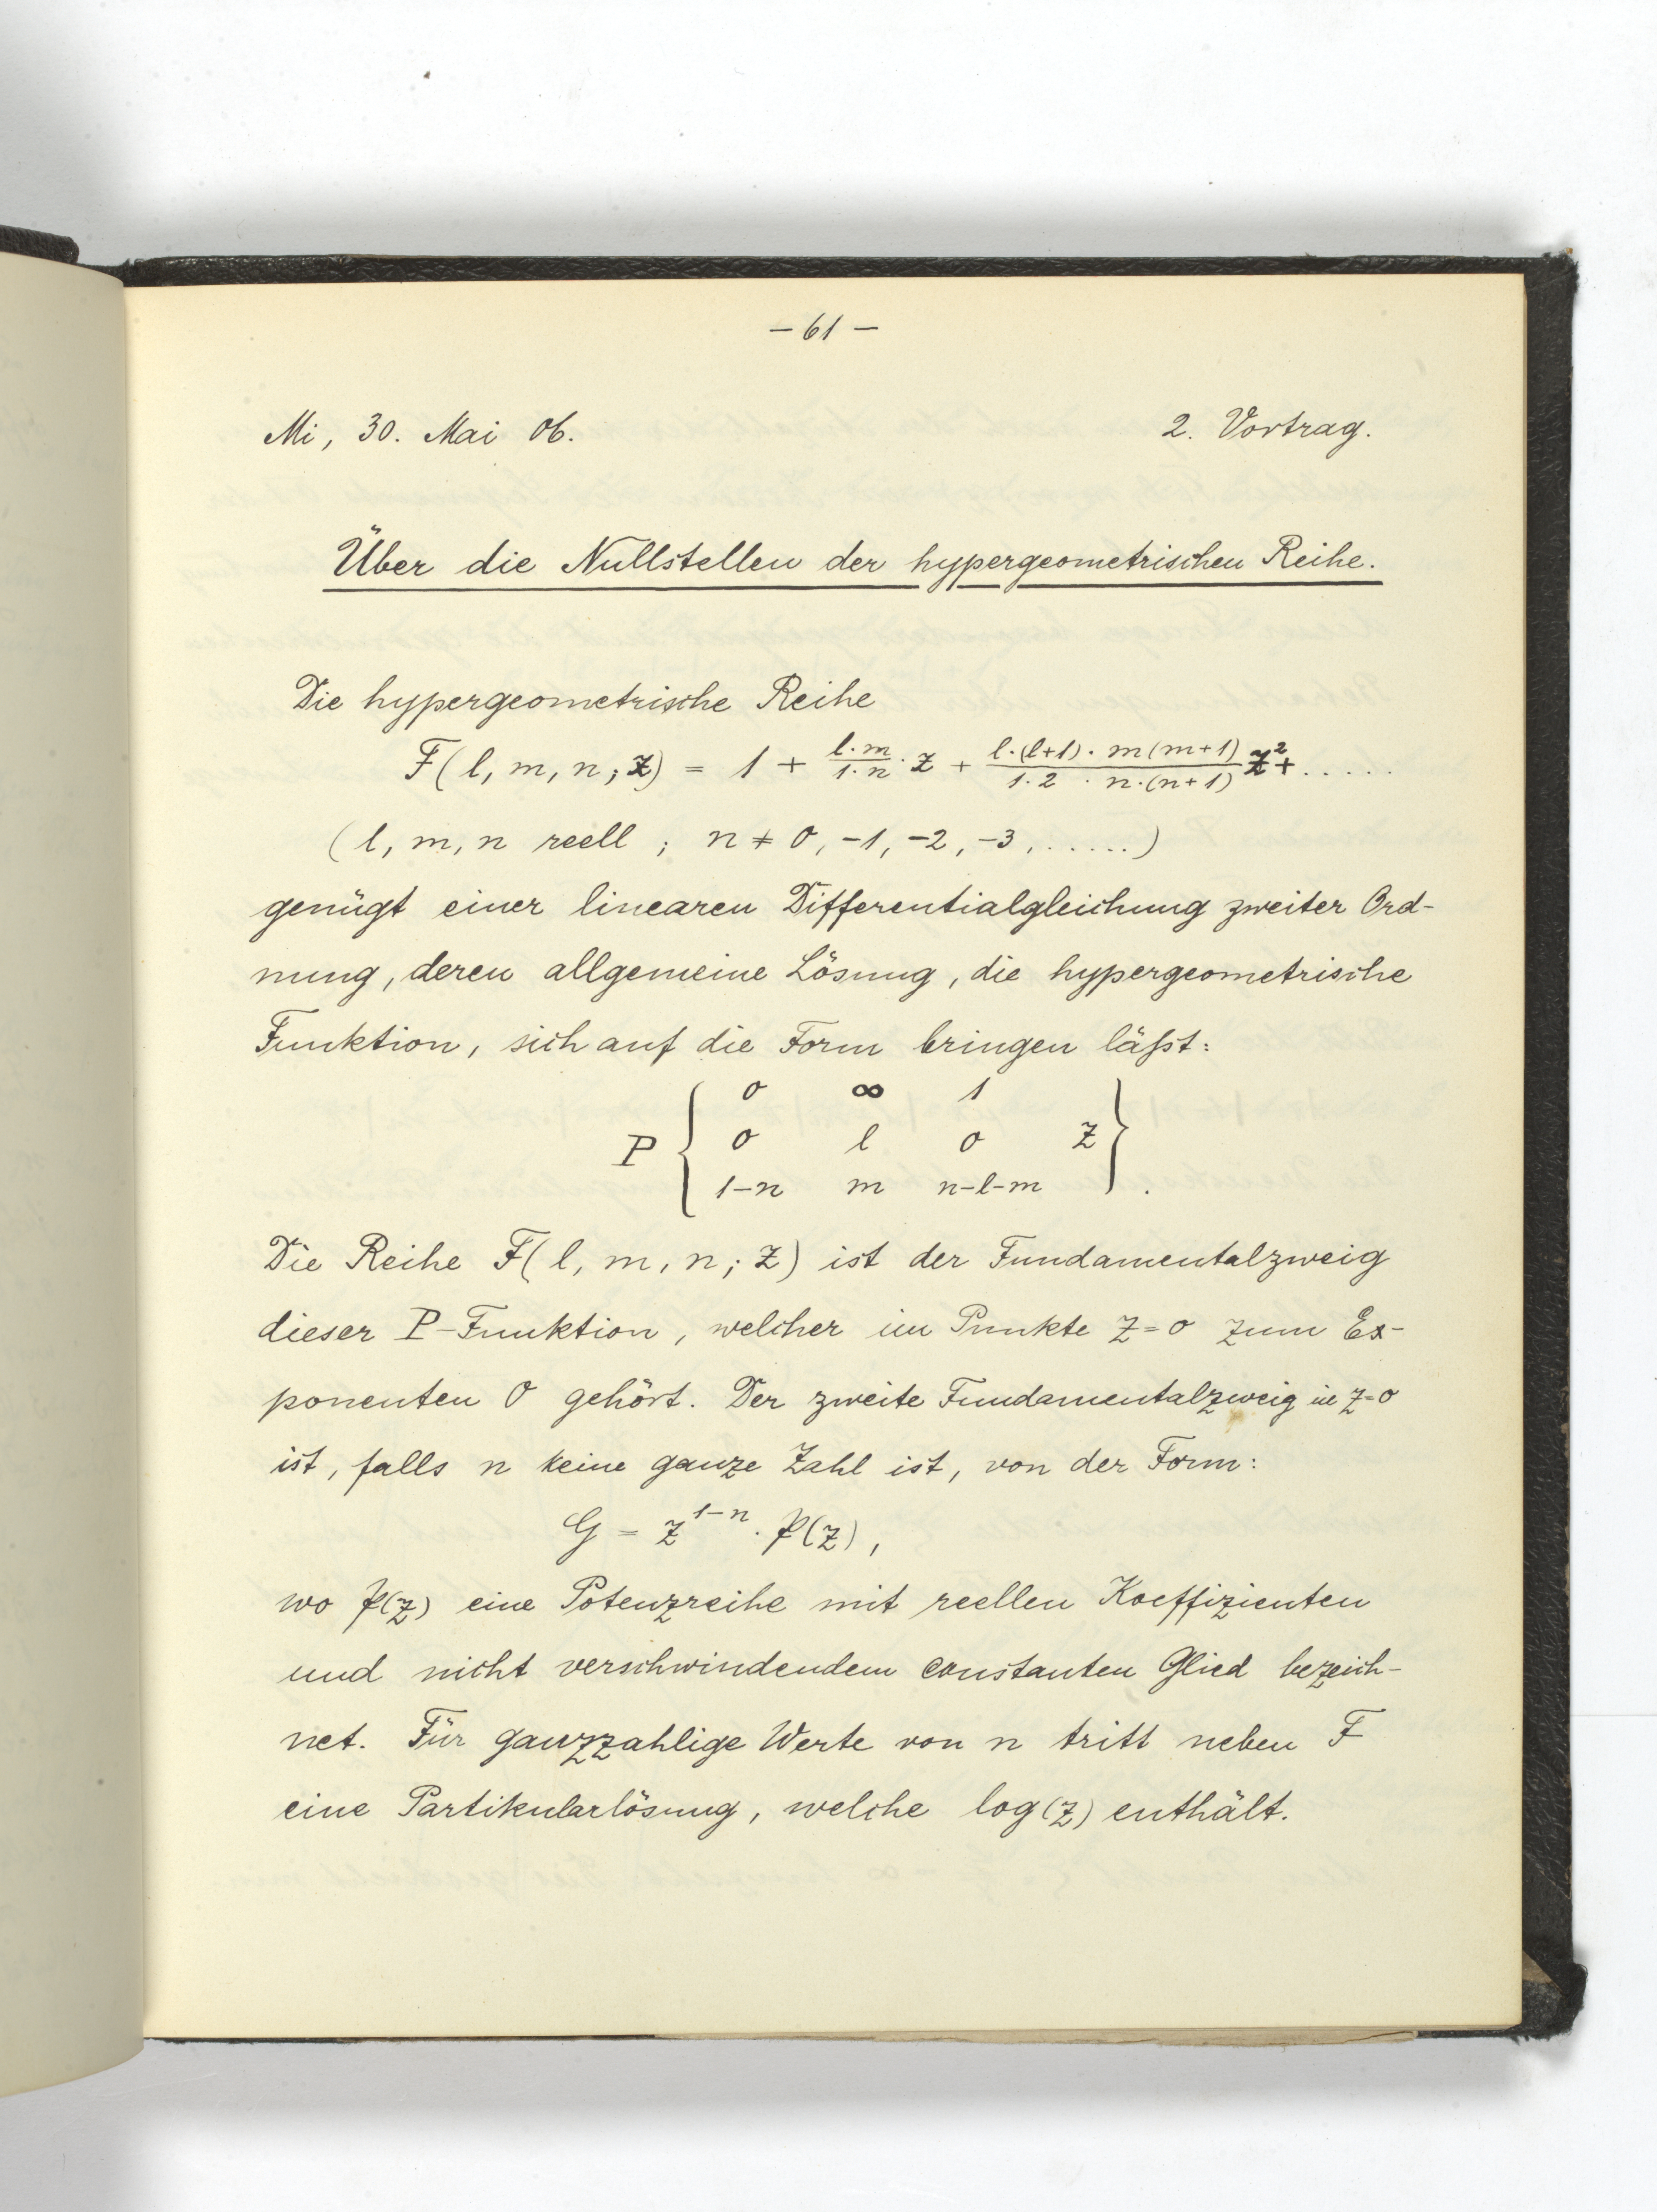 – 61 –
Mi, 30. Mai 06. 2. Vortrag.
Über die Nullstellen der hypergeometrischen Reihe.
Die hypergeometrische Reihe
F(l, m, n; z) = 1 + \frac{l·m}{1·n}·z + \frac{l·(l+1)·m(m+1)}{1·2·n·(n+1)} z² + .....
(l, m, n reell ; n ≠ 0, –1, –2, –3, ......)
genügt einer linearen Differentialgleichung zweiter Ord-
nung, deren allgemeine Lösung, die hypergeometrische
Funktion, sich auf die Form bringen läßt:
0 ∞ 1
P { 0 l 0 z } .
1–n m n–l–m
Die Reihe F(l, m, n; z) ist der Fundamentalzweig
dieser P-Funktion, welcher im Punkte z=0 zum Ex-
ponenten 0 gehört. Der zweite Fundamentalzweig in z=0
ist, falls n keine ganze Zahl ist, von der Form:
G = z^{1–n} · P(z),
wo P(z) eine Potenzreihe mit reellen Koeffizienten
und nicht verschwindendem constanten Glied bezeich-
net. Für ganzzahlige Werte von n tritt neben F
eine Partikularlösung, welche log(z) enthält.